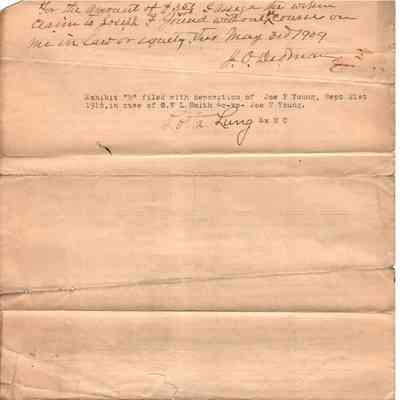 For the amount of I assign the within
claim to Joseph F Young without recourse on
me in law or equity this May 3rd 1909
J. O. Dedman
Exhibit "B" filed with deposition of Joe F Young, Sept 21st
1916, in case of S.F L Smith -o-xp- Joe F Young.
Lota Lung Ex N C